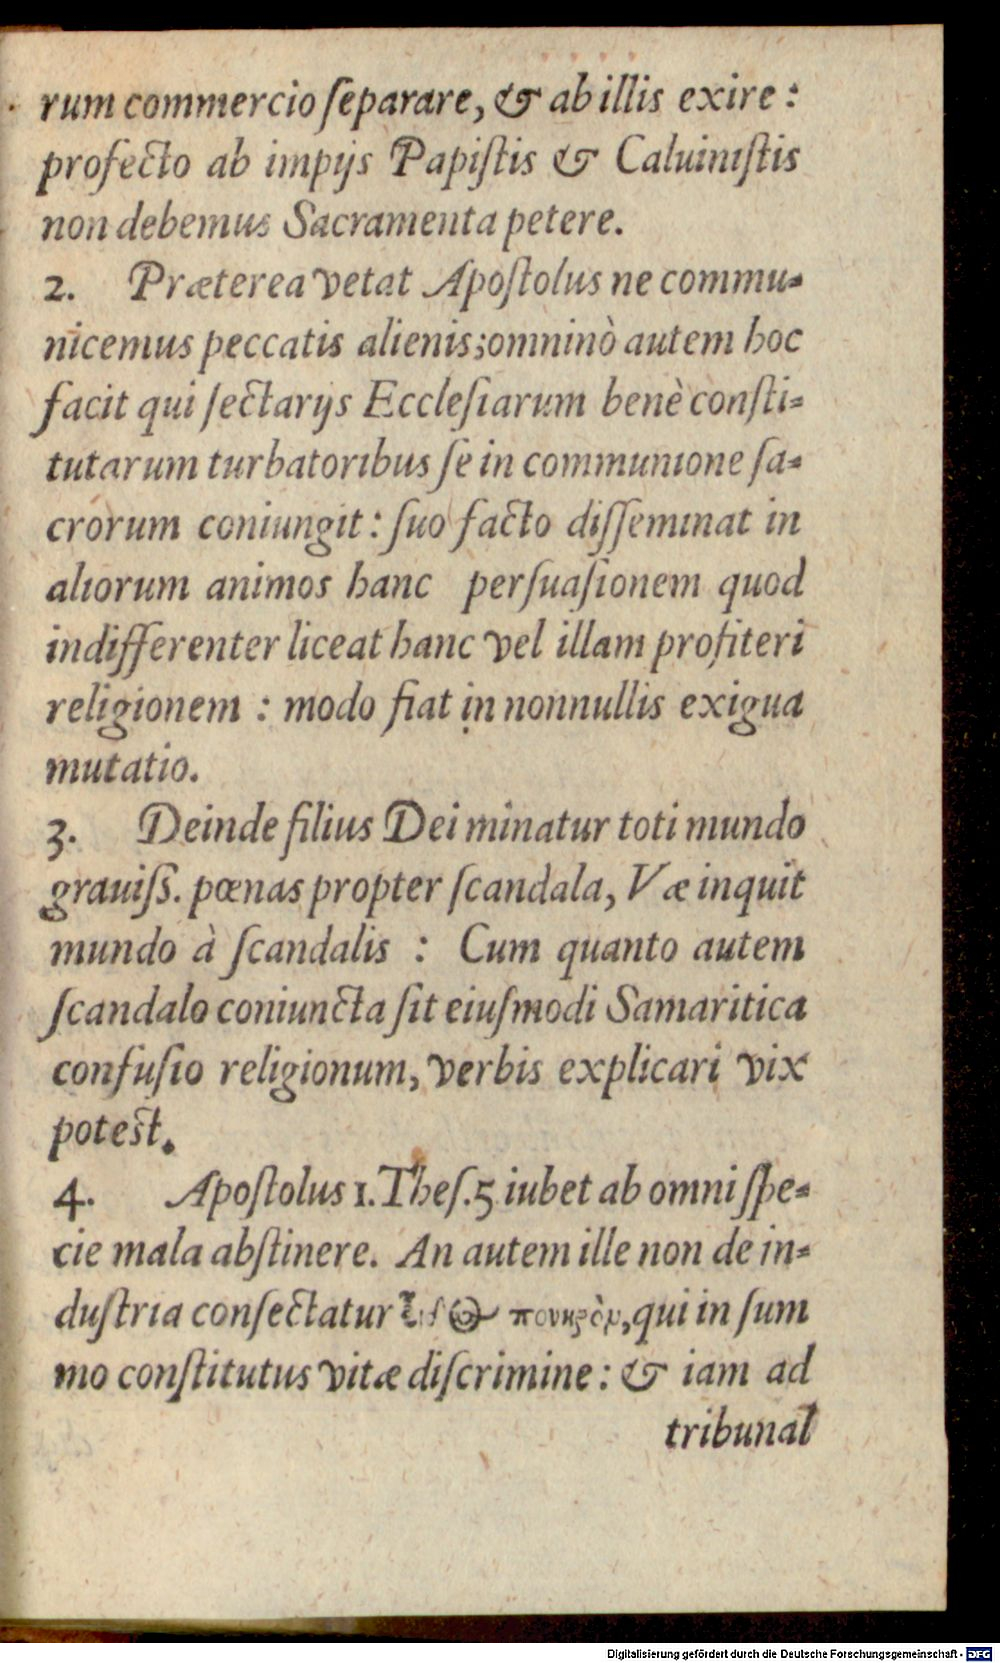 rum commercio ſeparare, & ab illis exire :
profecto ab impijs Papiſtis & Caluiniſtis
non debemus Sacramenta petere.
2. Præterea vetat Apoſtolus ne commu-
nicemus peccatis alienis; omninò autem hoc
facit qui ſectarijs Eccleſiarum benè conſti-
tutarum turbatoribus ſe in communione ſa-
crorum coniungit : ſuo facto diſſeminat in
aliorum animos hanc perſuaſionem quod
indifferenter liceat hanc vel illam profiteri
religionem : modo fiat in nonnullis exigua
mutatio.
3. Deinde filius Dei minatur toti mundo
grauiſſ. pœnas propter ſcandala, Væ inquit
mundo à ſcandalis : Cum quanto autem
ſcandalo coniuncta ſit eiuſmodi Samaritica
confuſio religionum, verbis explicari vix
poteſt.
4. Apoſtolus 1. Theſ. 5 iubet ab omni ſpe-
cie mala abſtinere. An autem ille non de in-
duſtria conſectatur πονηρὸν, qui in ſum
mo conſtitutus vitæ diſcrimine : & iam ad
tribunal
Digitalisierung gefördert durch die Deutsche Forschungsgemeinschaft - DFG